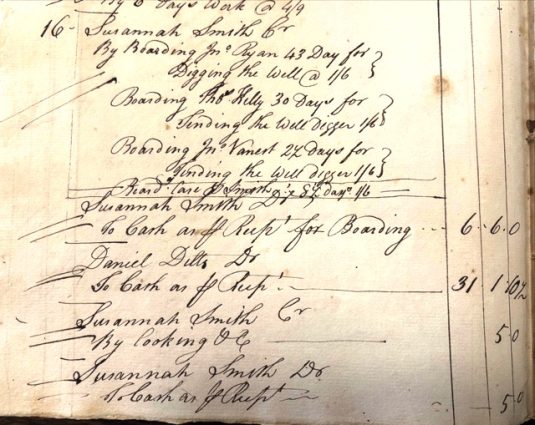 By 6 Days Work @ 4/9
16 - Susannah Smith Cr
By Boarding Jnº Ryan 43 Day for
Digging the Well @ 1/6
Boarding Thoˢ Kelly 30 Days for
Tending the Well Digger 1/6
Boarding Jnº Vanest 27 Days for
Tending the Well digger 1/6
Smith 1/6
Susannah Smith Dr
To Cash as ⅌ Recpᵗ for Boarding - - - 6 . 6 . 0
Daniel Dilts Dr
To Cash as ⅌ Recpᵗ 31 1 10½
Susannah Smith Cr
By Cooking &C 5 . 0
Susannah Smith Dr
To Cash as ⅌ Recpᵗ 5 . 0